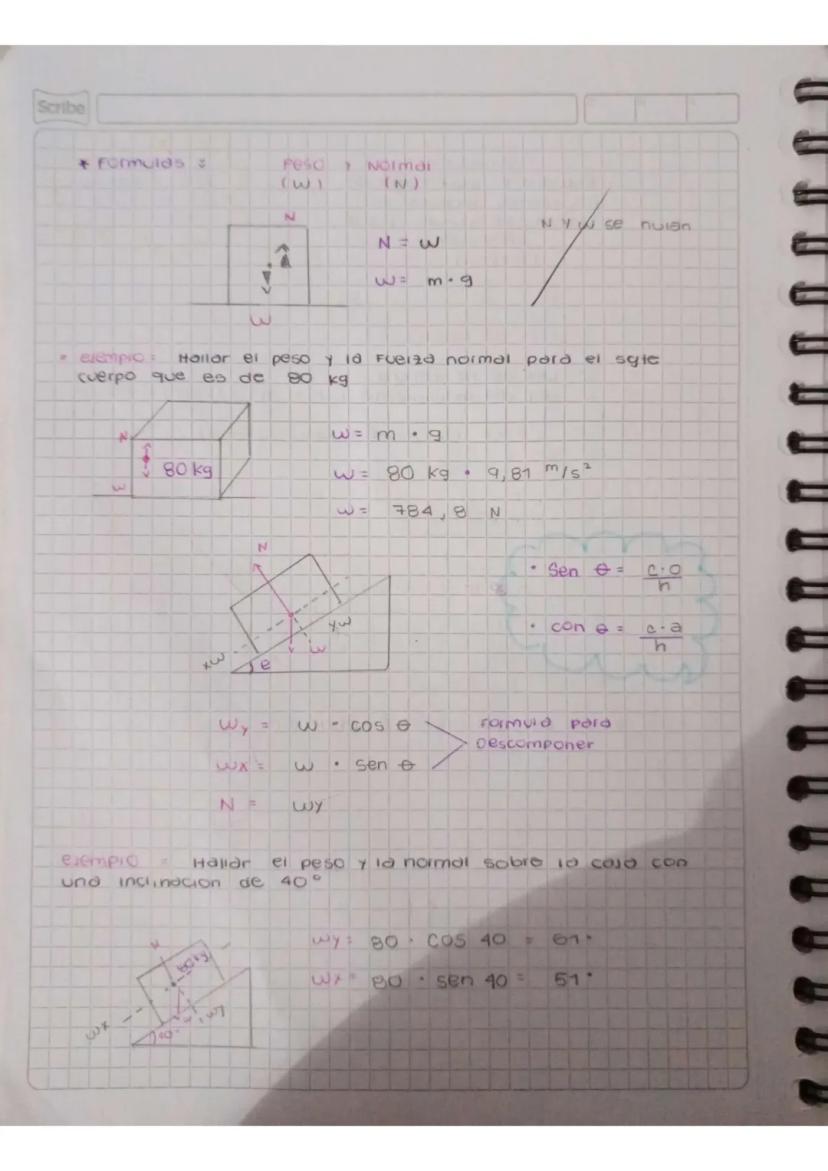 Scribe
* Formulas : Peso y Normal
(W) (N)
N
N y W se nulan
N = W
W = m · g
W
• ejemplo: Hallar el peso y la Fuerza normal para el sgte
cuerpo que es de 80 kg
N
80 kg
W
W = m · g
W = 80 kg · 9,81 m/s²
W = 784,8 N
N
Wx
W
Wx
θ
• Sen θ = c.o/h
• con θ = c.a/h
Wy = W · cos θ
Wx = W · sen θ
N = Wy
Formula para
Descomponer
ejemplo = Hallar el peso y la normal sobre la caja con
una inclinacion de 40°
N
Wx
Wy = 80 · COS 40 = 61·
Wx = 80 · sen 40 = 51·